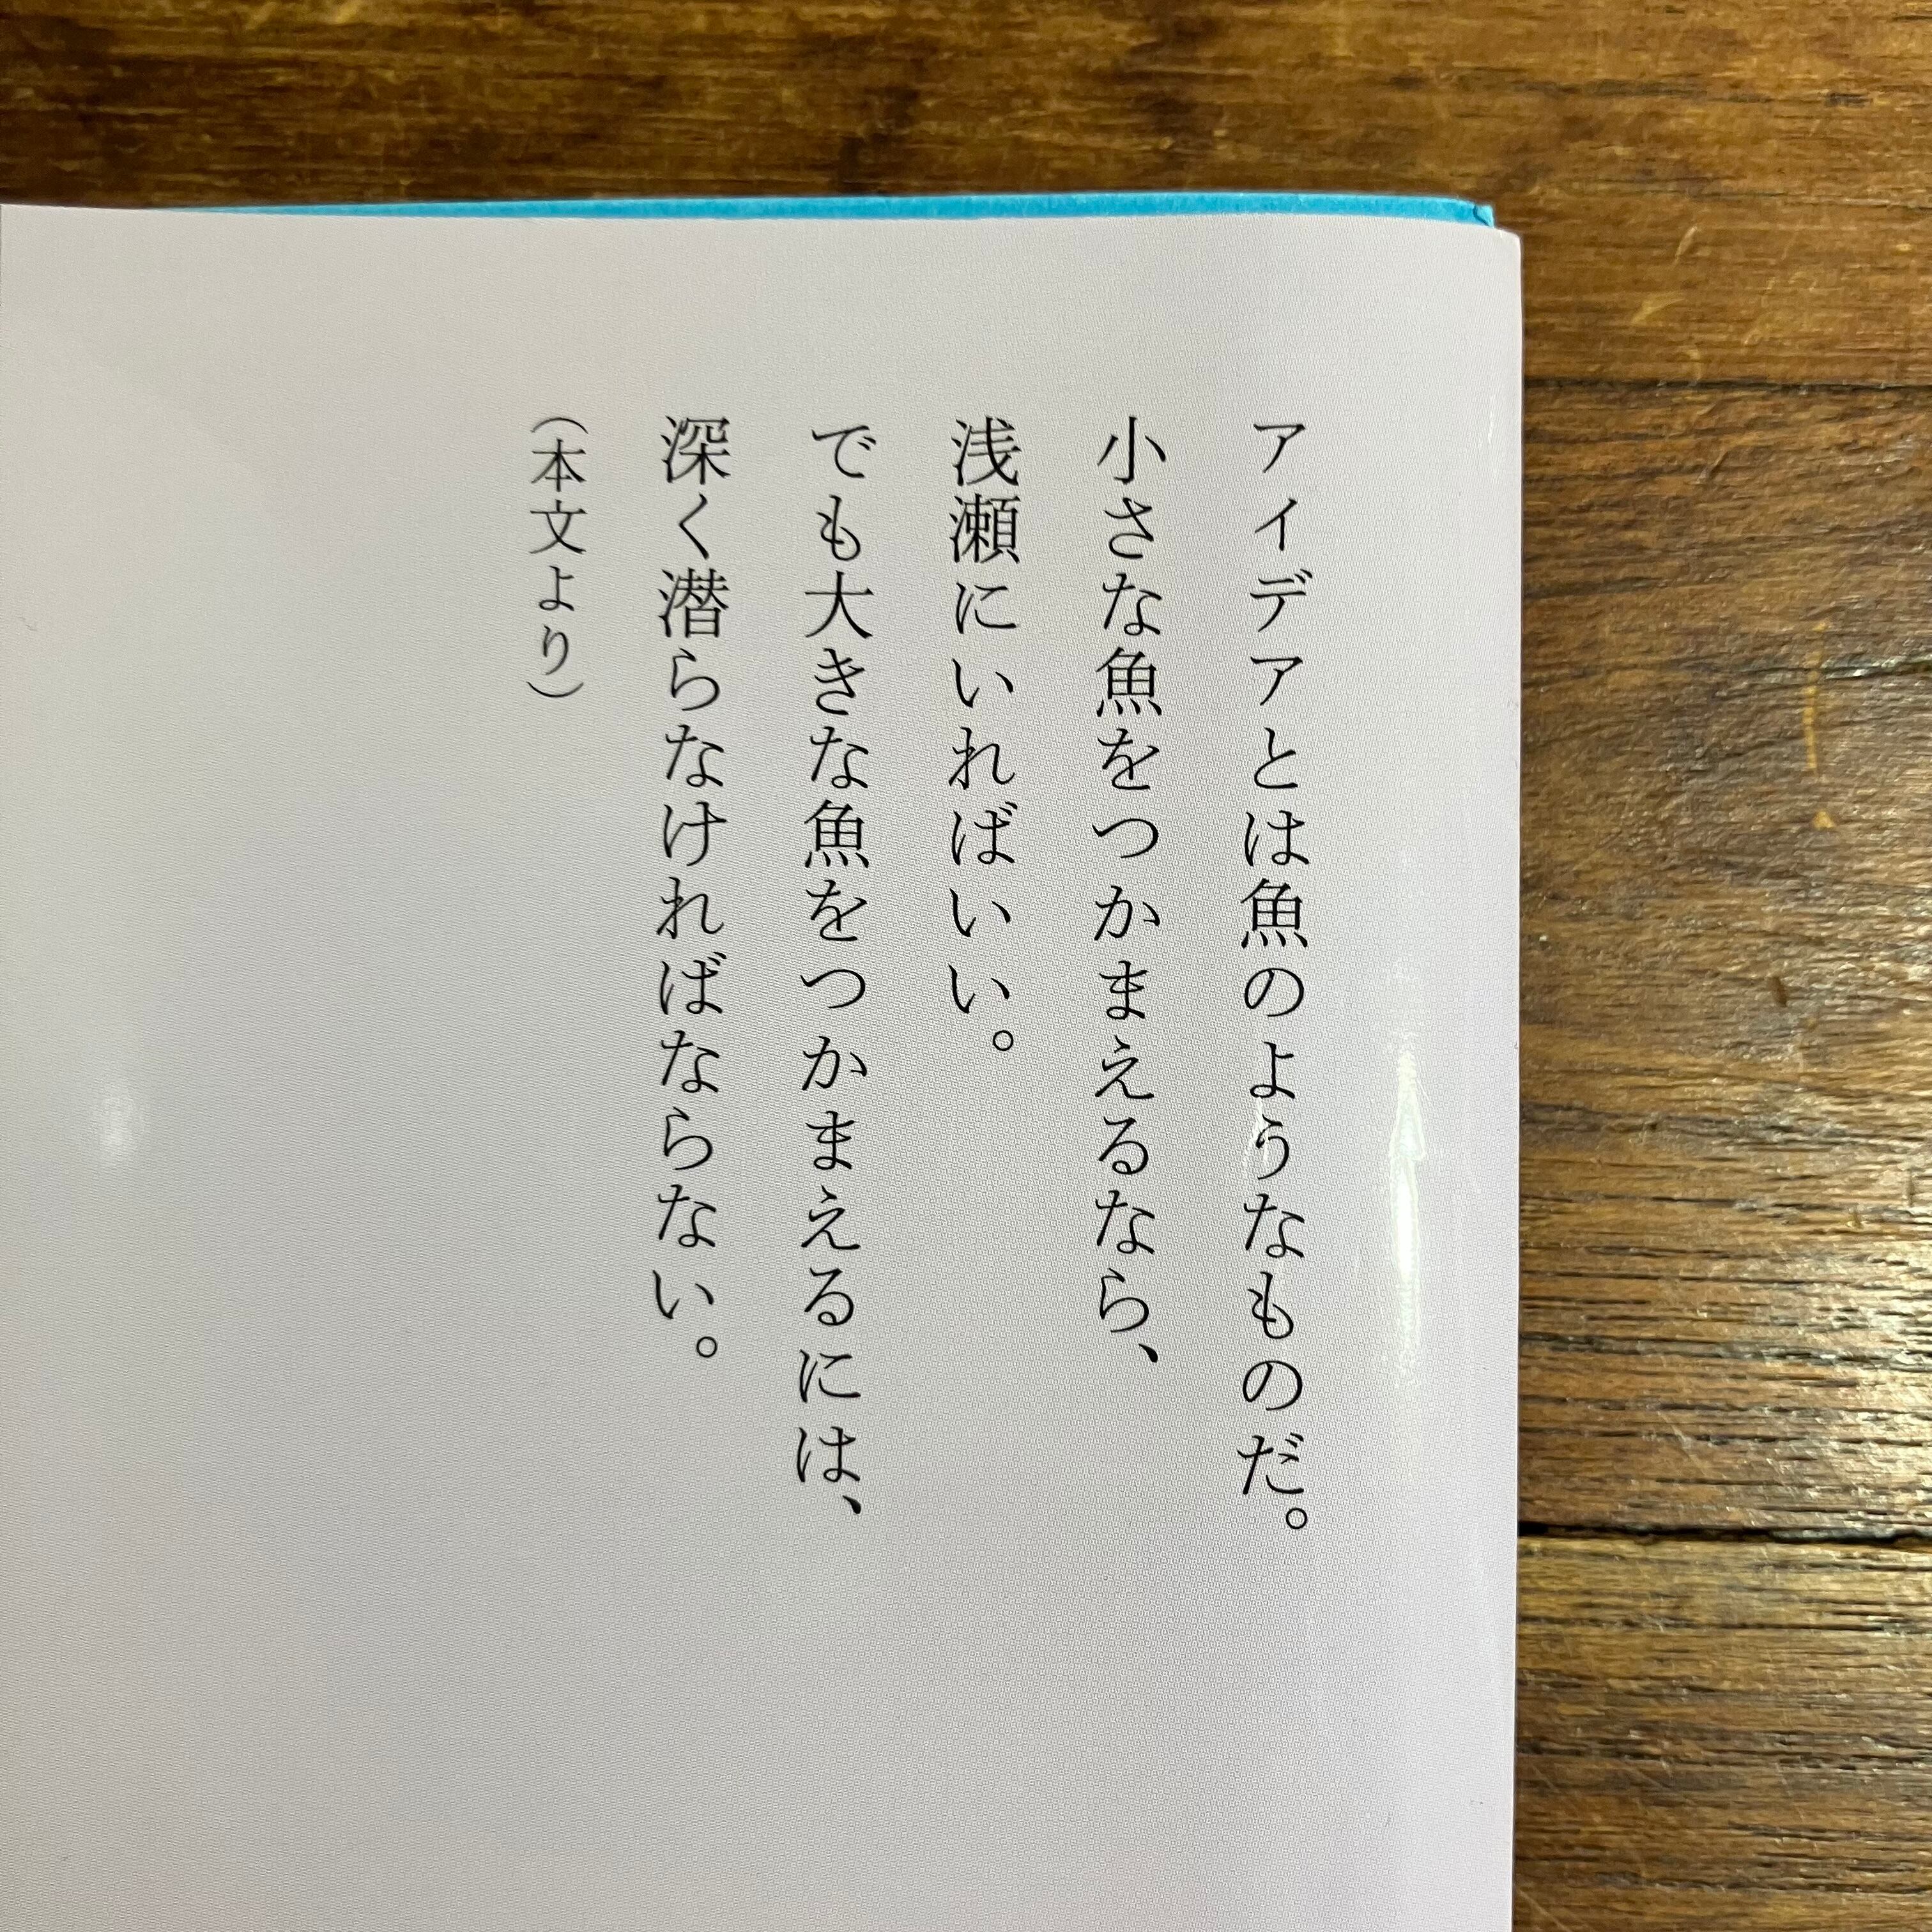 アイデアとは魚のようなものだ。
小さな魚をつかまえるなら、
浅瀬にいればいい。
でも大きな魚をつかまえるには、
深く潜らなければならない。
（本文より）